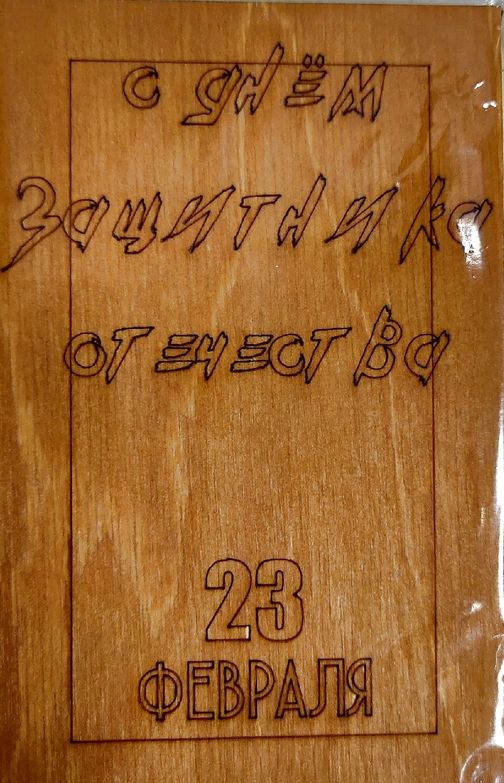 с днём
Защитника
отечества
23
ФЕВРАЛЯ